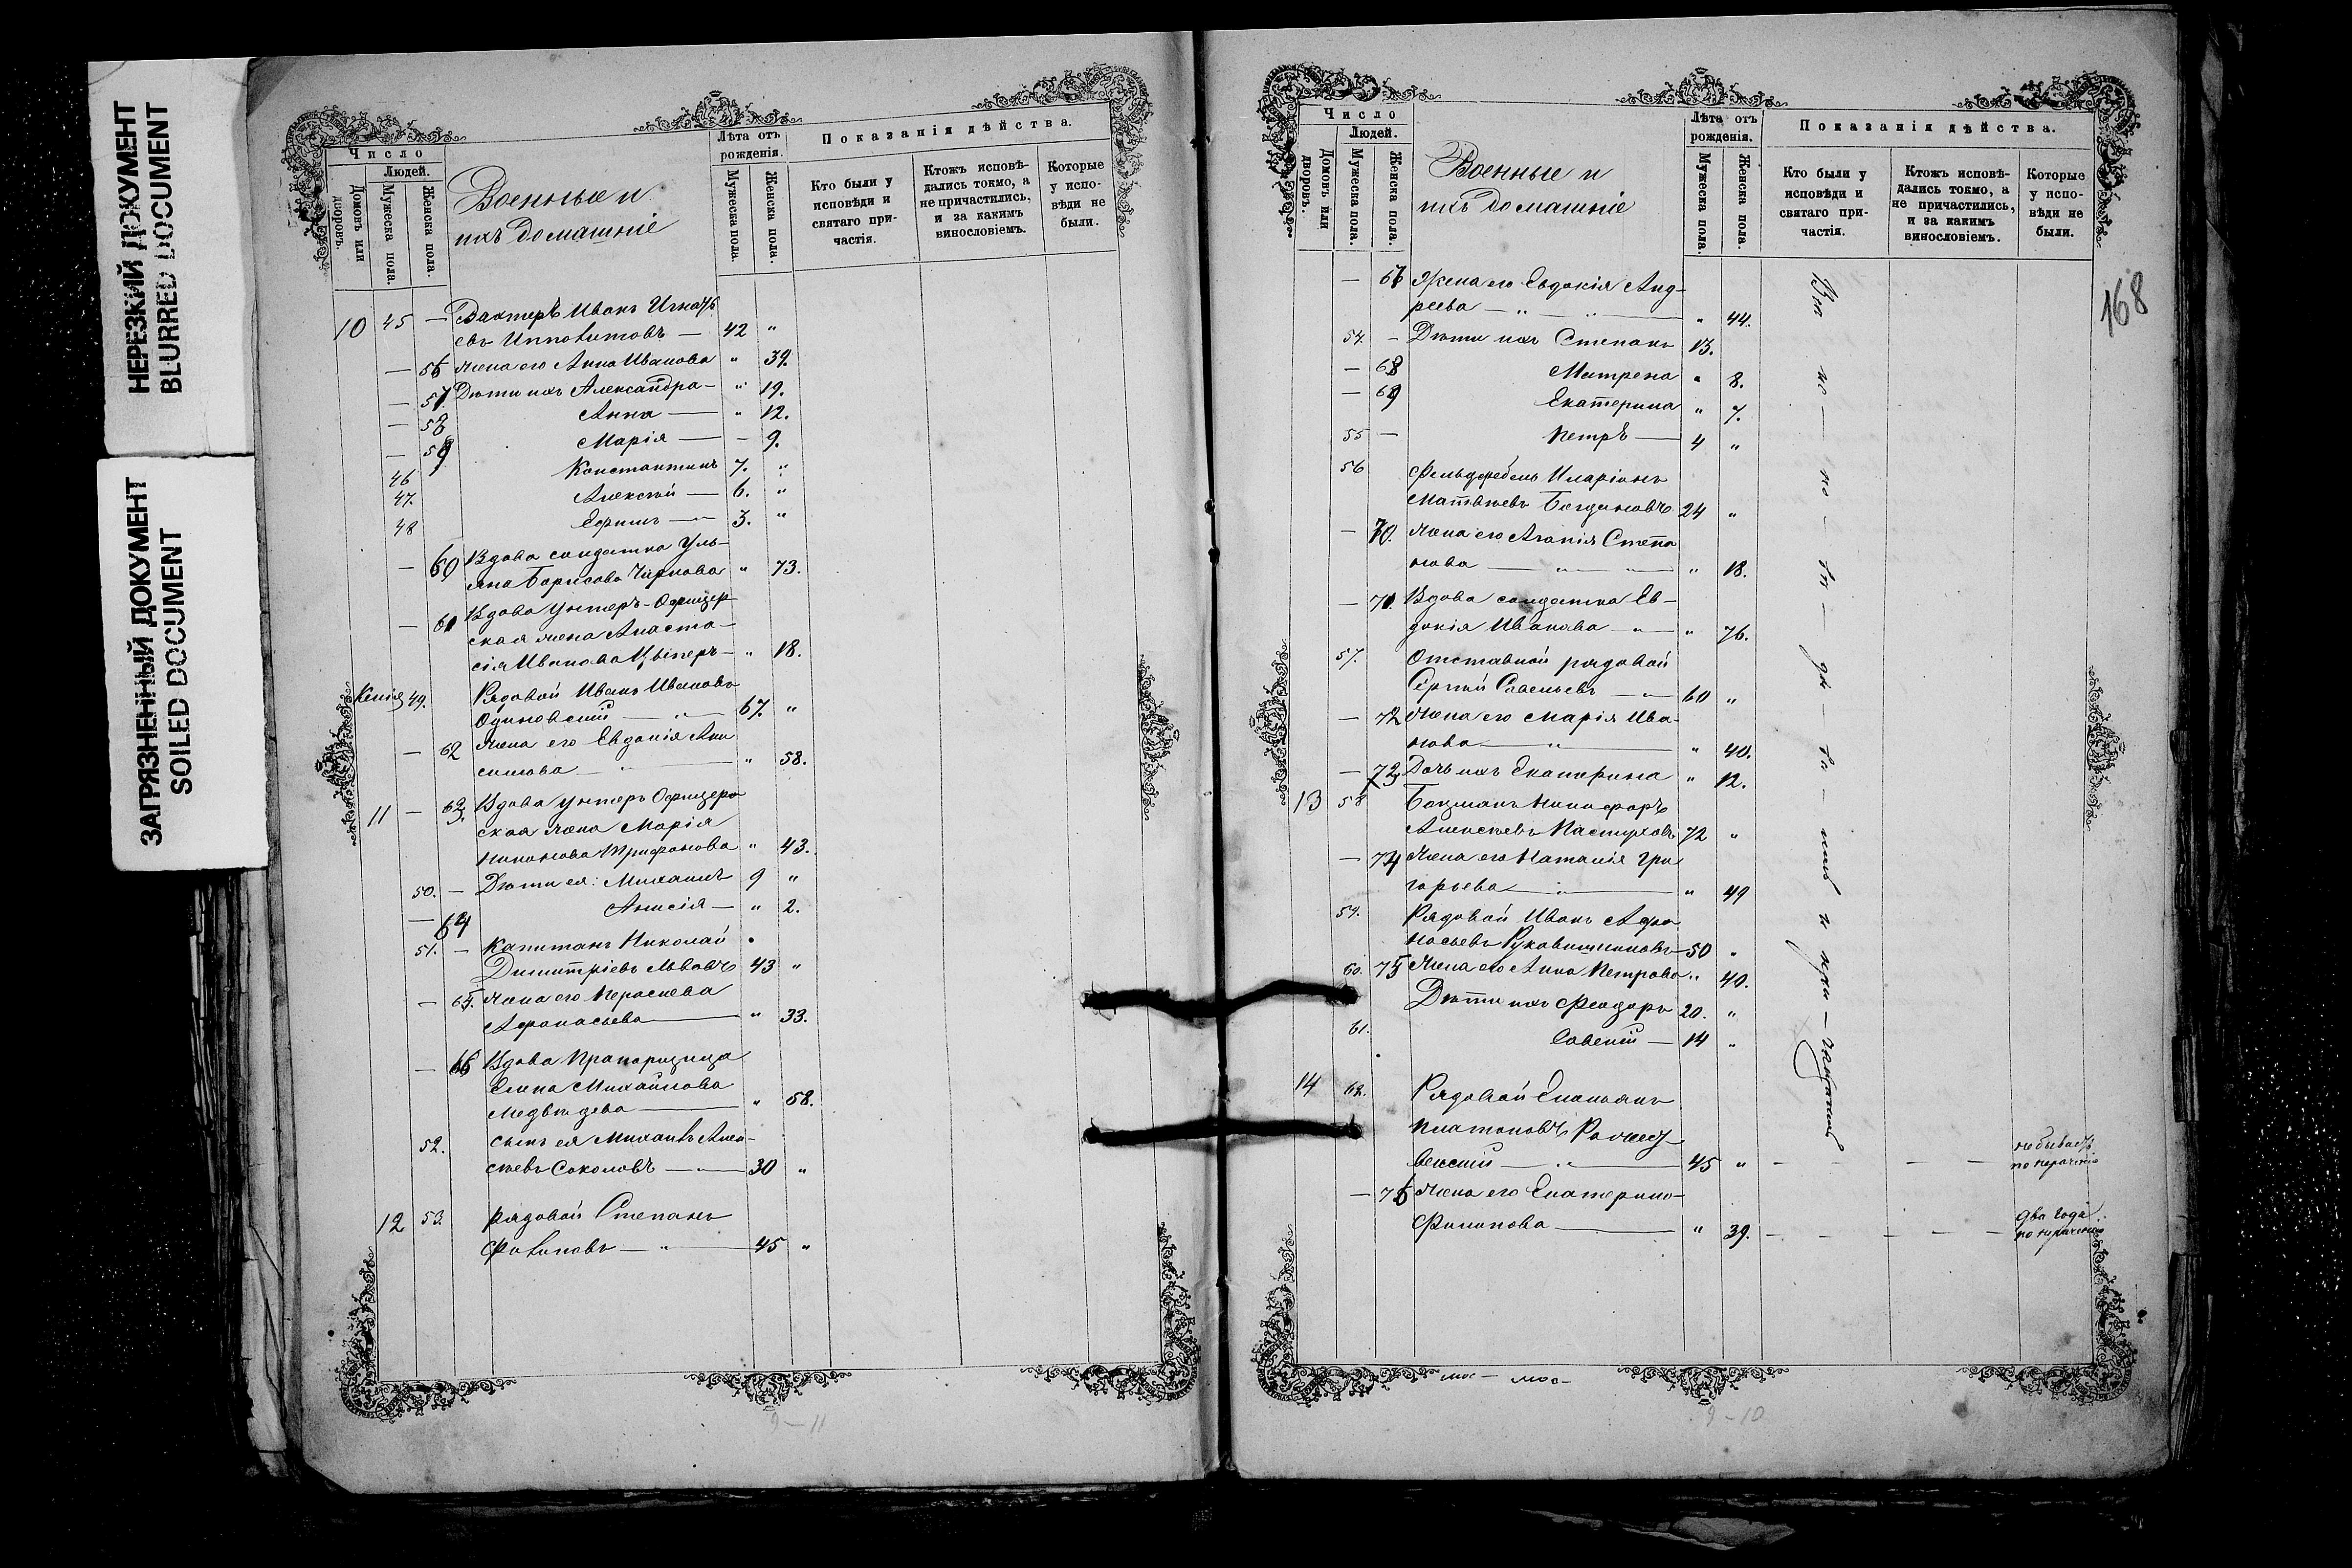 НЕРЕЗКИЙ ДОКУМЕНТ
BLURRED DOCUMENT
ЗАГРЯЗНЕННЫЙ ДОКУМЕНТ
SOILED DOCUMENT
Число
Людей.
Домовъ или дворовъ.
Мужеска пола.
Женска пола.
Военные и
ихъ домашніе
Лѣта отъ рожденія.
Мужеска пола.
Женска пола.
Показанія дѣйства.
Кто были у исповѣди и святаго причастія.
Ктожъ исповѣдались токмо, а не причастились, и за какимъ винословіемъ.
Которые у исповѣди не были.
10 45 — Вахтеръ Иванъ Игнать
евъ Ипполитовъ — 42 "
— 56 жена его Анна Иванова " 39.
— 57. Дѣти ихъ Александра — " 19.
— 58 Анна — " 12.
— 59 Марія — - 9.
46 Константинъ 7. "
47. Алексѣй — 6. "
48 Ефимъ — 3. "
— 60 Вдова солдатка Уль-
яна Борисова " 73.
— 61 Вдова Унтеръ-Офицер
ская жена Анаста-
сія Иванова — " 18.
49. Рядовой Иванъ Ивановъ
67. "
— 62 жена его Евдокія Ани
симова — " 58.
11 — 63 Вдова унтеръ Офицер
ская жена Марія
Трифонова " 43.
50. — Дѣти ея: Михаилъ 9 "
— 64 Анисія — " 2.
51. — Капитанъ Николай
Димитріевъ Львовъ 43 "
— 65. жена его Параскева
Афанасьева — " 33.
— 66 Вдова Прапорщица
Елена Михайлова
Медвѣдева — " 58.
52. сынъ ея Михаилъ Алек-
сѣевъ Соколовъ — 30 "
12 53. рядовой Степанъ
Филиповъ — " 45 "
9–11
Число
Людей.
Домовъ или дворовъ.
Мужеска пола.
Женска пола.
Военные и
ихъ домашніе
Лѣта отъ рожденія.
Мужеска пола
Женска пола.
Показанія дѣйства.
Кто были у исповѣди и святаго причастія.
Ктожъ исповѣдались токмо, а не причастились, и за какимъ винословіемъ.
Которые у исповѣди не были.
168
— 67 Жена его Евдокія Анд-
реева — " — " 44.
54. - Дѣти ихъ Степанъ 13.
— 68 Матрена " 8.
— 69 Екатерина " 7.
55 — Петръ — 4 "
56 Фельдфебель Иларіонъ
Матвѣевъ Богдановъ 24 "
— 70. жена его Агапія Степа
нова — " " 18.
— 71. Вдова солдатка Ев-
докія Иванова — " 76.
57. Отставной рядовой
Сергѣй Савельевъ — 60 "
— 72 жена его Марія Ива-
нова — " — " 40.
— 73 Дочь ихъ Екатерина " 12.
13 58 Боцманъ Никифоръ
Алексѣевъ Пастуховъ 72 "
— 74 жена его Наталія Гри
горьева — " 49
59. Рядовой Иванъ Афа
насьевъ Рукавишниковъ — 50 "
60. 75 жена его Анна Петрова " 40.
Дѣти ихъ Феодоръ 20. "
61. Савелій — 14 "
14 62. Рядовой Емельянъ
Платоновъ
45 " — — — не бываетъ
по нераченію
— 76 жена его Екатерина
Филипова — " 39. — — — два года
по нераченію
9–10